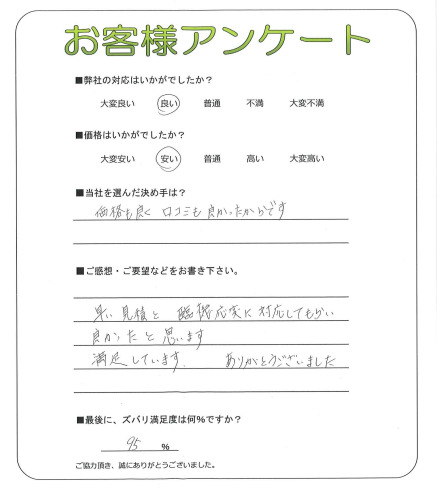 お客様アンケート
■弊社の対応はいかがでしたか？
大変良い 良い 普通 不満 大変不満
■価格はいかがでしたか？
大変安い 安い 普通 高い 大変高い
■当社を選んだ決め手は？
価格も良く 口コミも良かったからです
■ご感想・ご要望などをお書き下さい。
早い見積と 臨機応変に対応してもらい
良かったと思います
満足しています。 ありがとうございました
■最後に、ズバリ満足度は何％ですか？
95 ％
ご協力頂き、誠にありがとうございました。